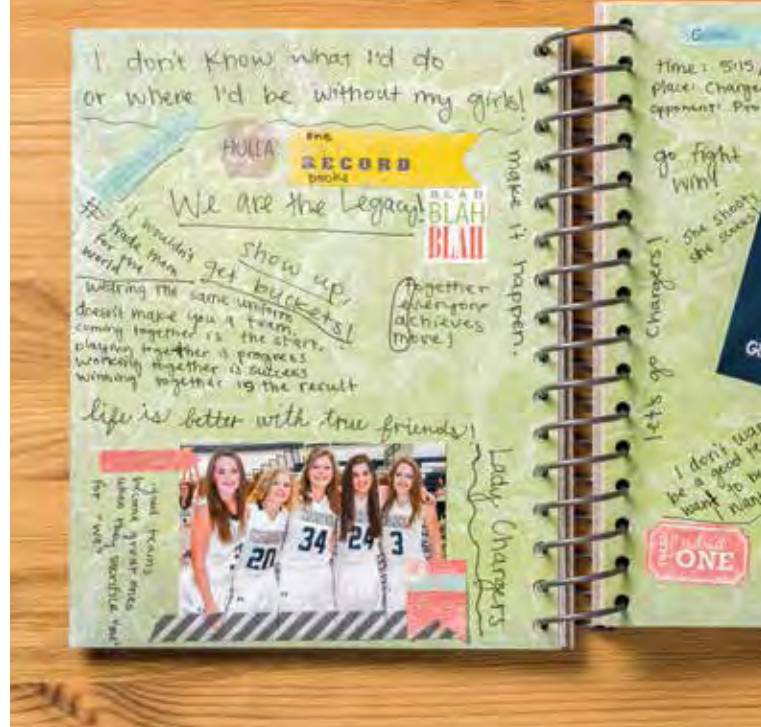 I don't know what I'd do
or where I'd be without my girls!
HOLLA
one
RECORD
books
We are the Legacy!
BLAH
BLAH
BLAH
make it happen.
#
I wouldn't
trade them
for the
world
show up,
get buckets!
wearing the same uniform
doesn't make you a team.
coming together is the start.
playing together is progress
working together is success
winning together is the result
together
everyone
achieves
more!
life is better with true friends!
good teams
become great ones
when they sacrifice "me"
for "we"
20
34
24
3
Lady Chargers
time: 5:15
place:
opponent:
go fight
win!
she shoots
she scores
let's go Chargers!
I don't
be a good
want to be
ONE